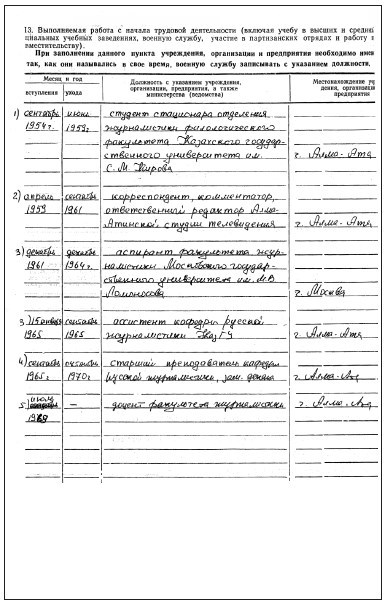 13. Выполняемая работа с начала трудовой деятельности (включая учебу в высших и средни
циальных учебных заведениях, военную службу, участие в партизанских отрядах и работу
вместительству).
При заполнении данного пункта учреждения, организации и предприятия необходимо имен
так, как они назывались в свое время, военную службу записывать с указанием должности.
Месяц и год
вступления ухода
Должность с указанием учреждения,
организации, предприятия, а также
министерства (ведомства)
Местонахождение уч
дения, организаци
предприятия
1) сентябрь июнь студент стационара отделения
1954г. 1959г. журналистики филологического
факультета Казахского государ-
ственного университета им. г. Алма-Ата
С. М. Кирова
2) апрель сентябрь корреспондент, комментатор,
1959 1961 ответственный редактор Алма-
Атинской студии телевидения г. Алма-Ата
3) декабрь декабрь аспирант факультета жур-
1961 1964г. налистики Московского государ-
ственного университета им. М.В.
Ломоносова г. Москва
3) 15 января сентябрь ассистент кафедры русской
1965 1965 журналистики КазГУ г. Алма-Ата
4) сентябрь старший преподаватель кафедры
1965г. 1970г русской журналистики, зам. декана г. Алма-Ата
5 июль — доцент факультета журналистики г. Алма-Ата